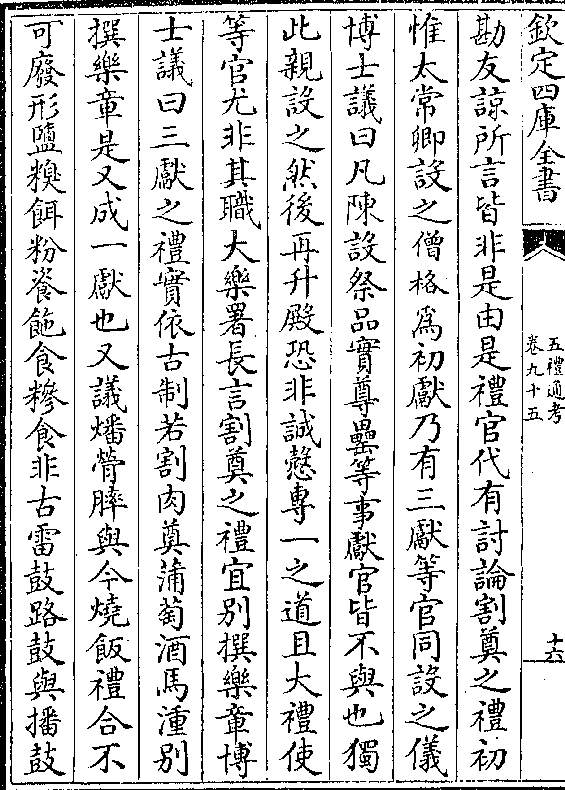 欽定四庫全書
五禮通考
卷九十五
十六
勘友諒所言皆非是由是禮官代有討論割奠之禮初
惟太常卿設之僧格為初獻乃有三獻等官同設之儀
博士議曰凡陳設祭品實尊罍等事獻官皆不與也獨
此親設之然後再升殿恐非誠慤專一之道且大禮使
等官尤非其職大樂署長言割奠之禮宜別撰樂章博
士議曰三獻之禮實依古制若割肉奠蒲萄酒馬湩別
撰樂章是又成一獻也又議燔膋膟與今燒飯禮合不
可廢形鹽糗餌粉餈酏食糝食非古雷鼓路鼓與播鼓